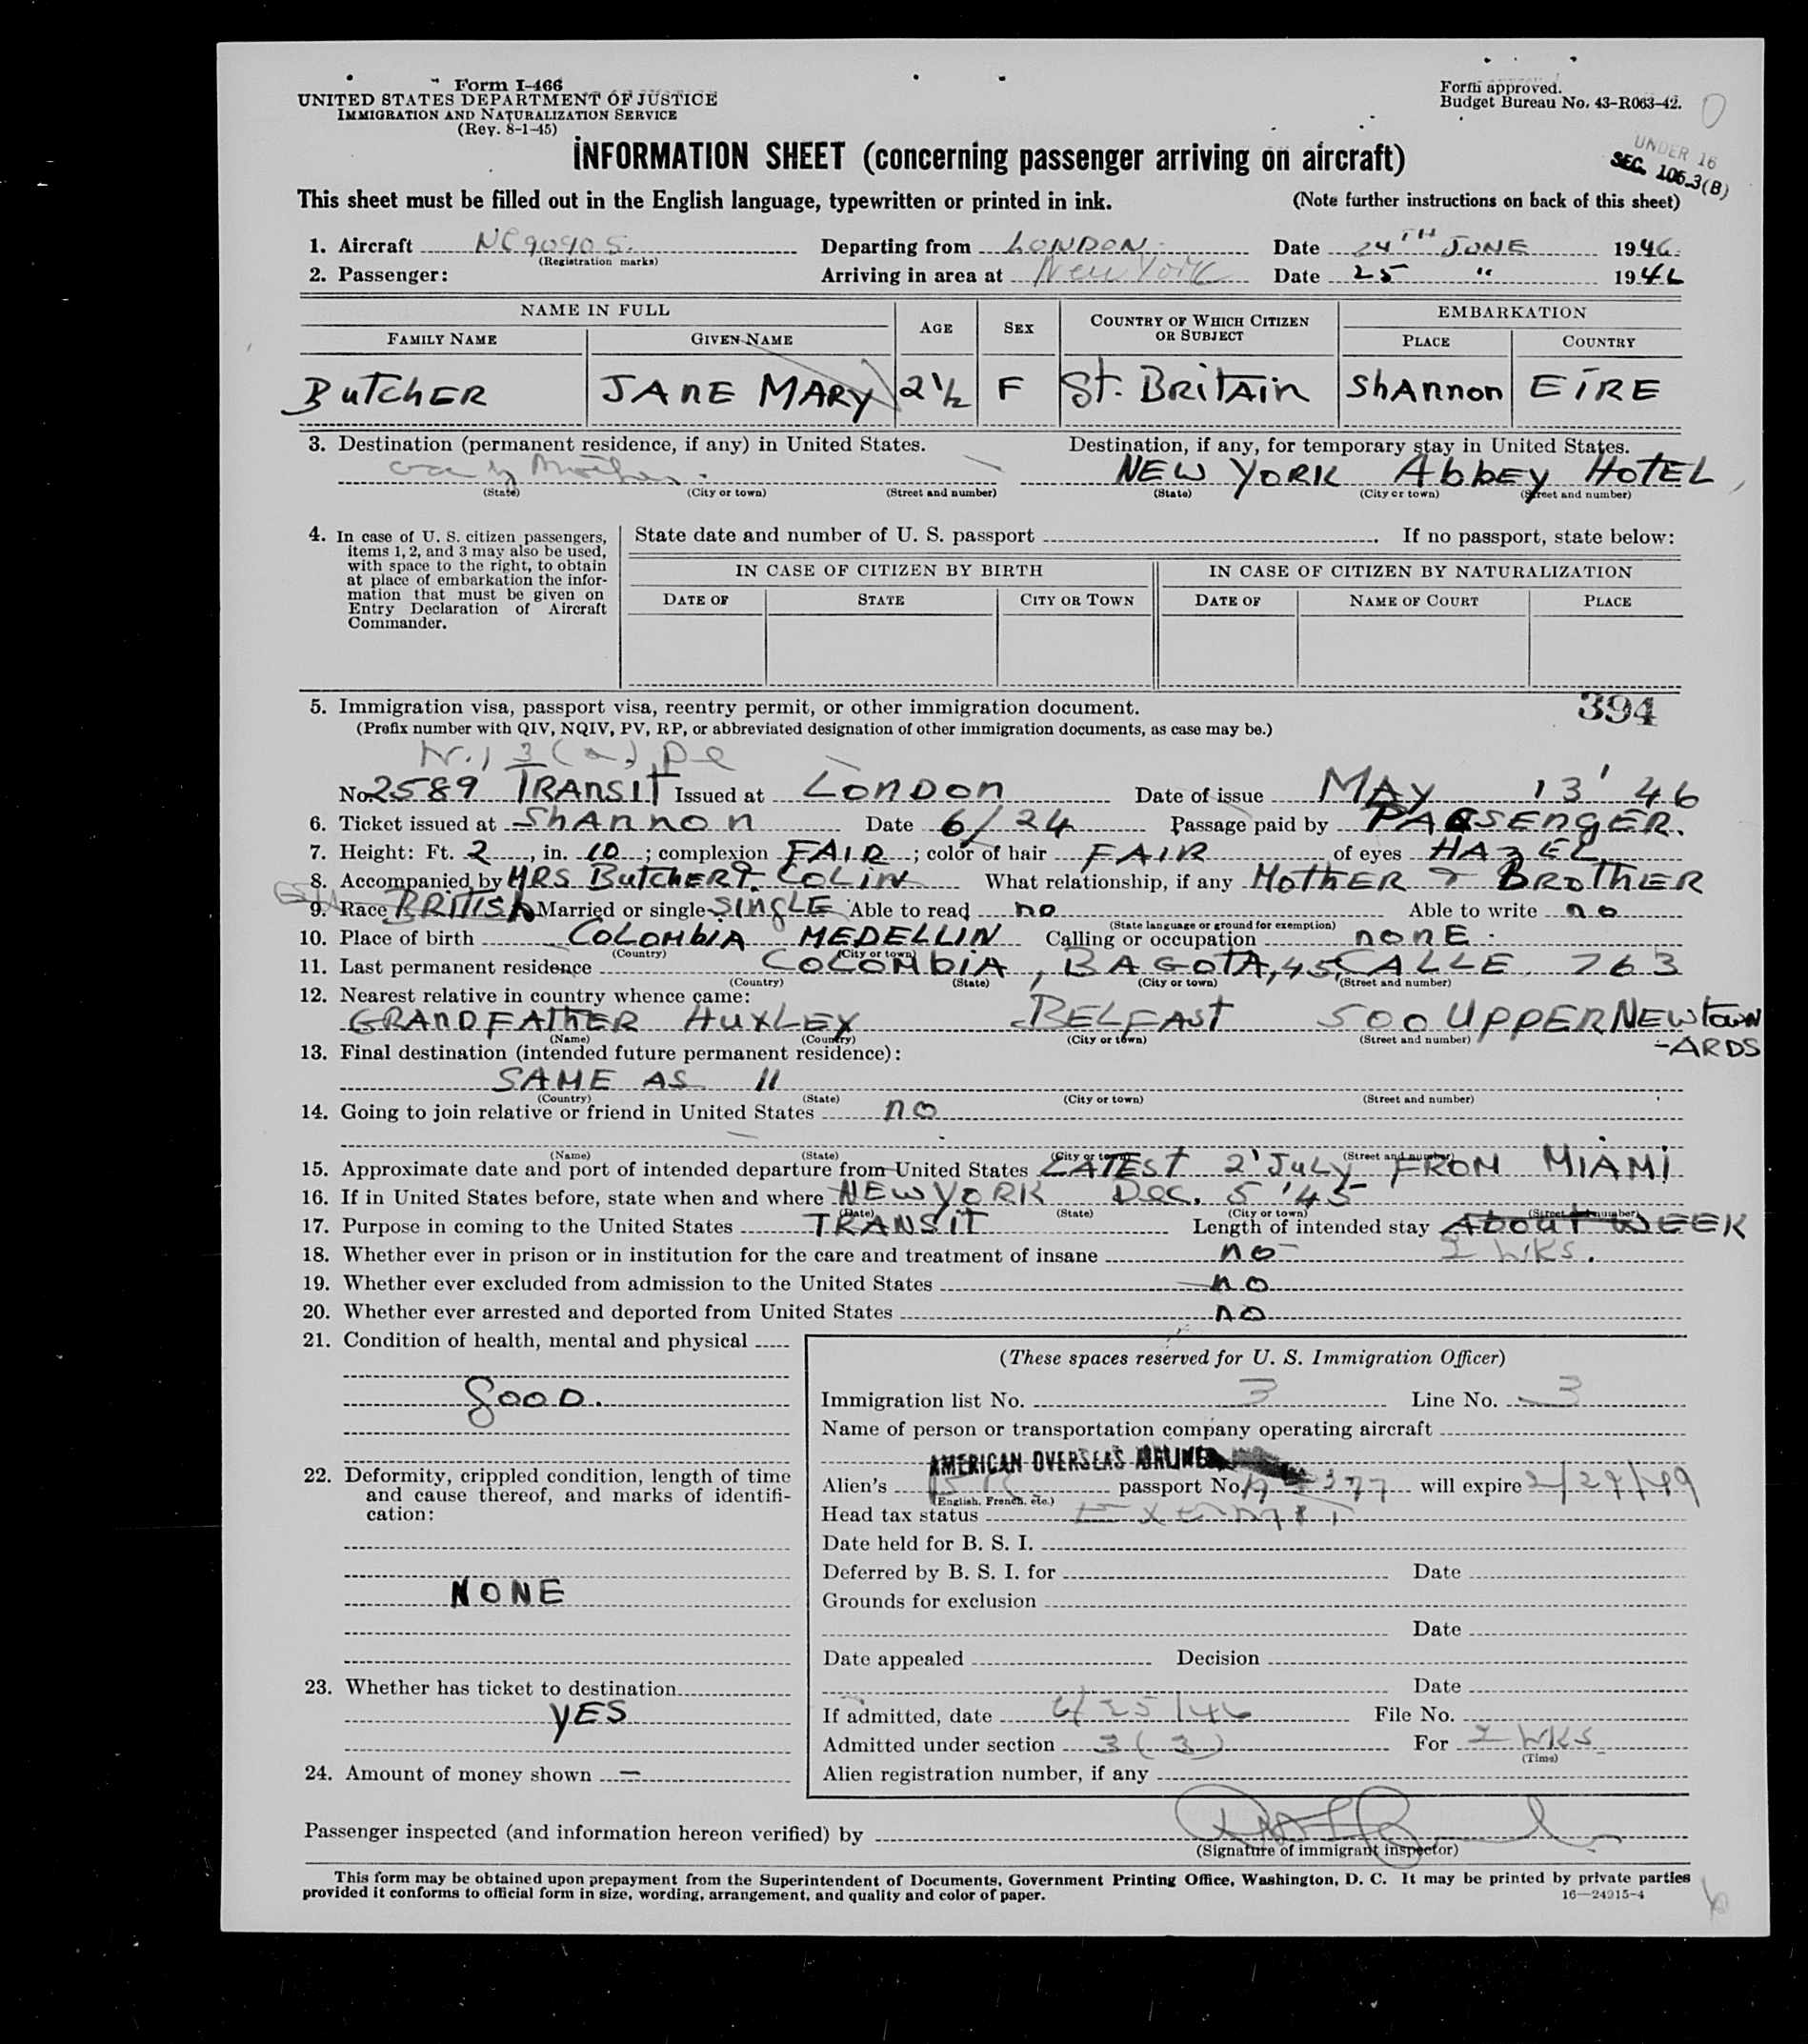 Form I-466
UNITED STATES DEPARTMENT OF JUSTICE
IMMIGRATION AND NATURALIZATION SERVICE
(Rev. 8-1-45)
Form approved.
Budget Bureau No. 43-R063-42.
UNDER 16
SEC. 106.3(B)
INFORMATION SHEET (concerning passenger arriving on aircraft)
This sheet must be filled out in the English language, typewritten or printed in ink. (Note further instructions on back of this sheet)
1. Aircraft NC90905. Departing from LONDON Date 24TH JUNE 1946
(Registration marks)
2. Passenger: Arriving in area at New York Date 25 " 1946
NAME IN FULL AGE SEX COUNTRY OF WHICH CITIZEN OR SUBJECT EMBARKATION
FAMILY NAME GIVEN NAME PLACE COUNTRY
BUTCHER JANE MARY 2½ F Gt. BRITAIN SHANNON EIRE
3. Destination (permanent residence, if any) in United States. Destination, if any, for temporary stay in United States.
NEW YORK ABBEY HOTEL
(State) (City or town) (Street and number) (State) (City or town) (Street and number)
4. In case of U. S. citizen passengers, items 1, 2, and 3 may also be used, with space to the right, to obtain at place of embarkation the information that must be given on Entry Declaration of Aircraft Commander.
State date and number of U. S. passport . If no passport, state below:
IN CASE OF CITIZEN BY BIRTH IN CASE OF CITIZEN BY NATURALIZATION
DATE OF STATE CITY OR TOWN DATE OF NAME OF COURT PLACE
394
5. Immigration visa, passport visa, reentry permit, or other immigration document.
(Prefix number with QIV, NQIV, PV, RP, or abbreviated designation of other immigration documents, as case may be.)
No. 2589 TRANSIT Issued at LONDON Date of issue MAY 13' 46
6. Ticket issued at SHANNON Date 6/24 Passage paid by PASSENGER.
7. Height: Ft. 2, in. 10; complexion FAIR; color of hair FAIR of eyes HAZEL
8. Accompanied by MRS BUTCHER & COLIN What relationship, if any MOTHER & BROTHER
9. Race BRITISH Married or single SINGLE Able to read no Able to write no
(State language or ground for exemption)
10. Place of birth COLOMBIA MEDELLIN Calling or occupation NONE.
(Country) (City or town)
11. Last permanent residence COLOMBIA, BAGOTA, 45 CALLE 763
(Country) (State) (City or town) (Street and number)
12. Nearest relative in country whence came:
GRANDFATHER HUXLEY BELFAST 500 UPPER NEWTOWN
-ARDS
(Name) (Country) (City or town) (Street and number)
13. Final destination (intended future permanent residence):
SAME AS 11
(Country) (State) (City or town) (Street and number)
14. Going to join relative or friend in United States no
(Name) (State) (City or town) (Street and number)
15. Approximate date and port of intended departure from United States LATEST 2' JULY FROM MIAMI
16. If in United States before, state when and where NEW YORK DEC. 5 '45
(Date) (State) (City or town) (Street and number)
17. Purpose in coming to the United States TRANSIT Length of intended stay ABOUT WEEK
18. Whether ever in prison or in institution for the care and treatment of insane no 2 WKS.
19. Whether ever excluded from admission to the United States no
20. Whether ever arrested and deported from United States no
21. Condition of health, mental and physical
GOOD.
22. Deformity, crippled condition, length of time and cause thereof, and marks of identification:
NONE
23. Whether has ticket to destination
YES
24. Amount of money shown —
(These spaces reserved for U. S. Immigration Officer)
Immigration list No. 3 Line No. 3
Name of person or transportation company operating aircraft
AMERICAN OVERSEAS AIRLINES
Alien's passport No. will expire 2/27/49
(English, French, etc.)
Head tax status EXEMPT
Date held for B. S. I.
Deferred by B. S. I. for Date
Grounds for exclusion
Date
Date appealed Decision
Date
If admitted, date 6/25/46 File No.
Admitted under section 3(3) For 2 WKS
(Time)
Alien registration number, if any
Passenger inspected (and information hereon verified) by
(Signature of immigrant inspector)
This form may be obtained upon prepayment from the Superintendent of Documents, Government Printing Office, Washington, D. C. It may be printed by private parties
provided it conforms to official form in size, wording, arrangement, and quality and color of paper. 16—24915-4